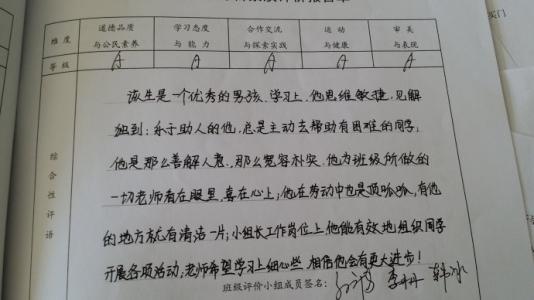 维度 道德品质与公民素养 学习态度与能力 合作交流与探索实践 运动与健康 审美与表现
等级 A A A A A
综合性评语
该生是一个优秀的男孩,学习上,他思维敏捷,见解
独到;乐于助人的他,总是主动去帮助有困难的同学;
他是那么善解人意,那么宽容朴实,他为班级所做的
一切老师看在眼里,喜在心上;他在劳动中也是顶呱呱,有他
的地方就有清洁一片;小组长工作岗位上他能有效地组织同学
开展各项活动;老师希望学习上细心些,相信他会有更大进步!
班级评价小组成员签名: